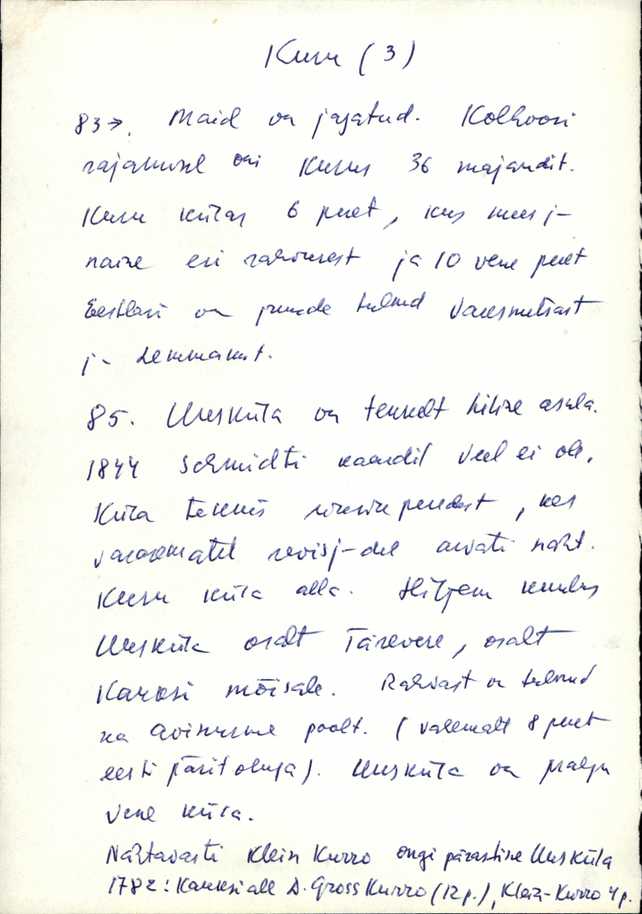 Kuru (3)
83→. Maid on jagatud. Kolhoosi
rajamisel oli Kurus 36 majandit.
Kuru külas 6 peret, kus mees j-
naine eri rahvusest ja 10 vene peret
Eestlasi on juurde tulnud Varesmetsast
j- Lemmakust.
85. Uusküla on teiselt hiline asula.
1844 Schmidti kaardil veel ei ole.
Küla tekkis peredest, kes
varasematel revisj-del arvati näht.
Kuru küla alla. Hiljem kuulus
Uusküla osalt Tärevere, osalt
Karasi mõisale. Rahvast on tulnud
ka Avinurme poolt. (vähemalt 8 peret
eesti päritoluga). Uusküla on praegu
vene küla.
Nähtavasti Klein Kurro ongi pärastine Uusküla
1782: all D. Gross Kurro (12 p.), Klein-Kurro 4 p.